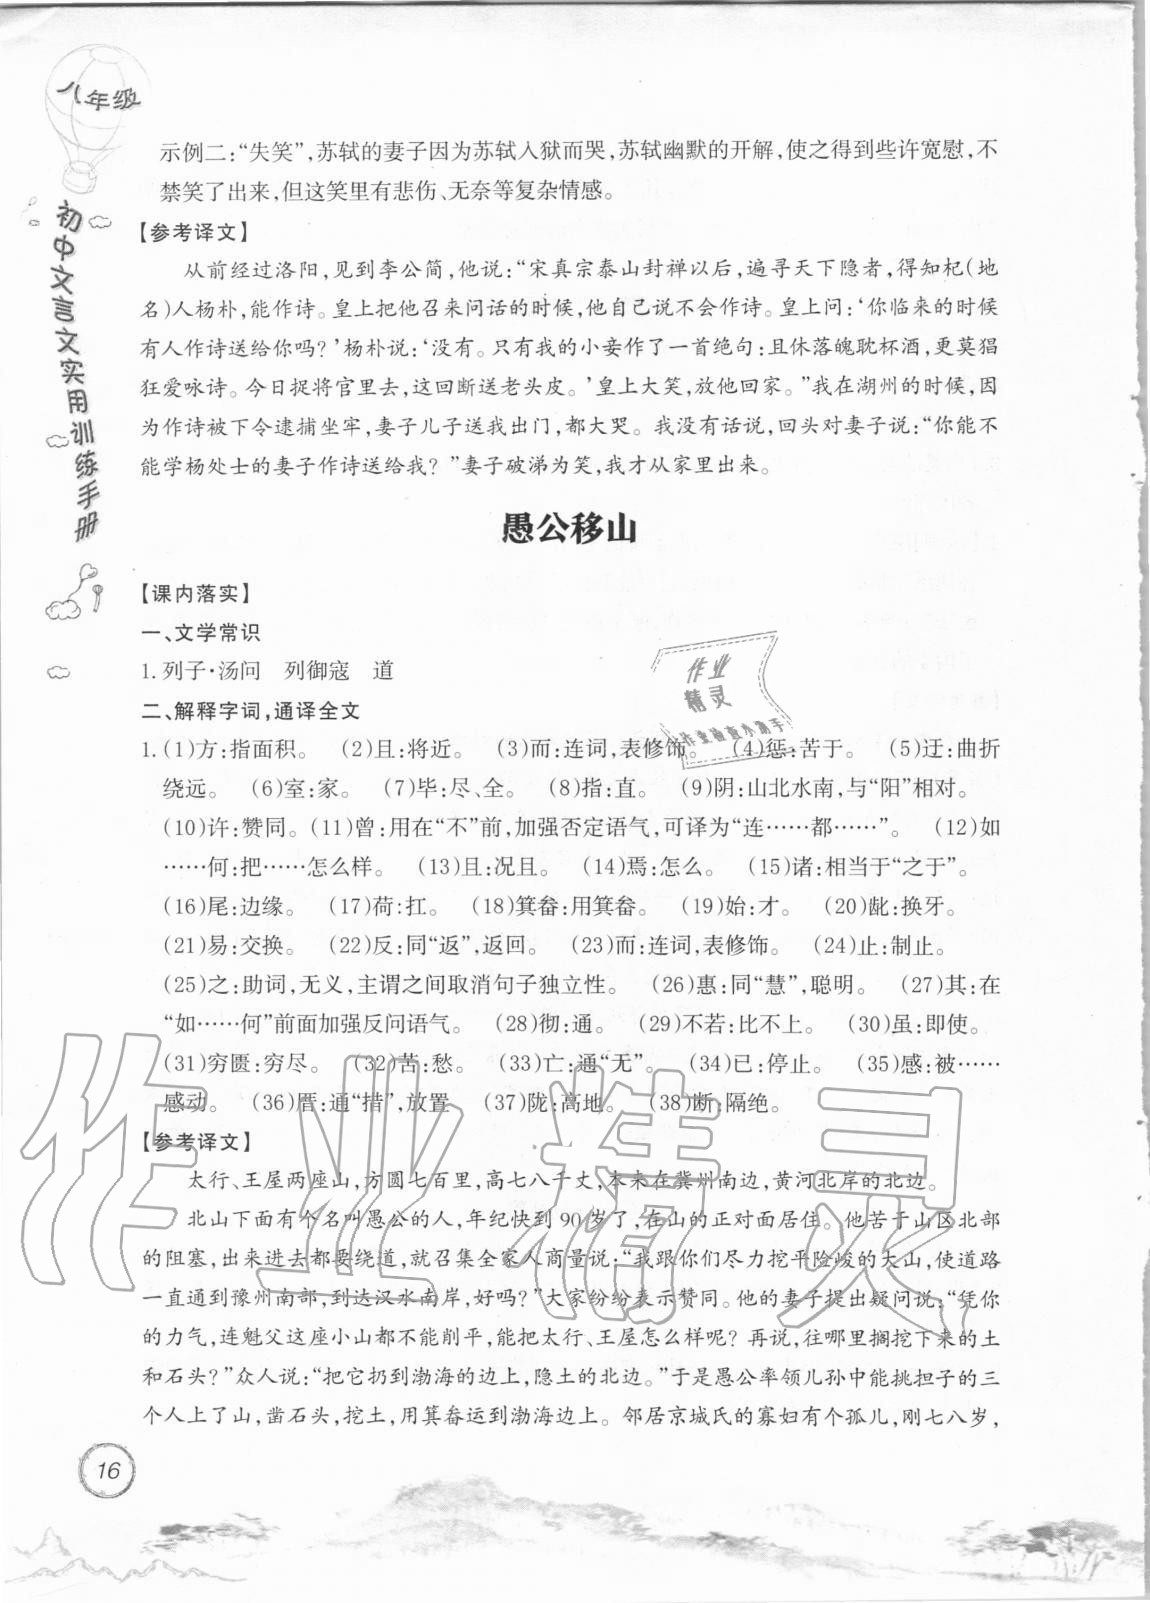 八年级
初中文言文实用训练手册
示例二:“失笑”,苏轼的妻子因为苏轼入狱而哭,苏轼幽默的开解,使之得到些许宽慰,不
禁笑了出来,但这笑里有悲伤、无奈等复杂情感。
【参考译文】
从前经过洛阳,见到李公简,他说:“宋真宗泰山封禅以后,遍寻天下隐者,得知杞(地
名)人杨朴,能作诗。皇上把他召来问话的时候,他自己说不会作诗。皇上问:‘你临来的时候
有人作诗送给你吗?’杨朴说:‘没有。只有我的小妾作了一首绝句:且休落魄耽杯酒,更莫猖
狂爱咏诗。今日捉将官里去,这回断送老头皮。’皇上大笑,放他回家。”我在湖州的时候,因
为作诗被下令逮捕坐牢,妻子儿子送我出门,都大哭。我没有话说,回头对妻子说:“你能不
能学杨处士的妻子作诗送给我?”妻子破涕为笑,我才从家里出来。
愚公移山
【课内落实】
一、文学常识
1. 列子·汤问 列御寇 道
二、解释字词,通译全文
1. (1)方:指面积。 (2)且:将近。 (3)而:连词,表修饰。 (4)惩:苦于。 (5)迂:曲折
绕远。 (6)室:家。 (7)毕:尽、全。 (8)指:直。 (9)阴:山北水南,与“阳”相对。
(10)许:赞同。(11)曾:用在“不”前,加强否定语气,可译为“连……都……”。 (12)如
……何:把……怎么样。 (13)且:况且。 (14)焉:怎么。 (15)诸:相当于“之于”。
(16)尾:边缘。 (17)荷:扛。 (18)箕畚:用箕畚。 (19)始:才。 (20)龀:换牙。
(21)易:交换。 (22)反:同“返”,返回。 (23)而:连词,表修饰。 (24)止:制止。
(25)之:助词,无义,主谓之间取消句子独立性。 (26)惠:同“慧”,聪明。 (27)其:在
“如……何”前面加强反问语气。 (28)彻:通。 (29)不若:比不上。 (30)虽:即使。
(31)穷匮:穷尽。 (32)苦:愁。 (33)亡:通“无”。 (34)已:停止。 (35)感:被……
感动。 (36)厝:通“措”,放置 (37)陇:高地。 (38)断:隔绝。
【参考译文】
太行、王屋两座山,方圆七百里,高七八千丈,本来在冀州南边,黄河北岸的北边。
北山下面有个名叫愚公的人,年纪快到90岁了,在山的正对面居住。他苦于山区北部
的阻塞,出来进去都要绕道,就召集全家人商量说:“我跟你们尽力挖平险峻的大山,使道路
一直通到豫州南部,到达汉水南岸,好吗?”大家纷纷表示赞同。他的妻子提出疑问说:“凭你
的力气,连魁父这座小山都不能削平,能把太行、王屋怎么样呢?再说,往哪里搁挖下来的土
和石头?”众人说:“把它扔到渤海的边上,隐土的北边。”于是愚公率领儿孙中能挑担子的三
个人上了山,凿石头,挖土,用箕畚运到渤海边上。邻居京城氏的寡妇有个孤儿,刚七八岁,
16
作业
精灵
作业检查小助手
作业精灵